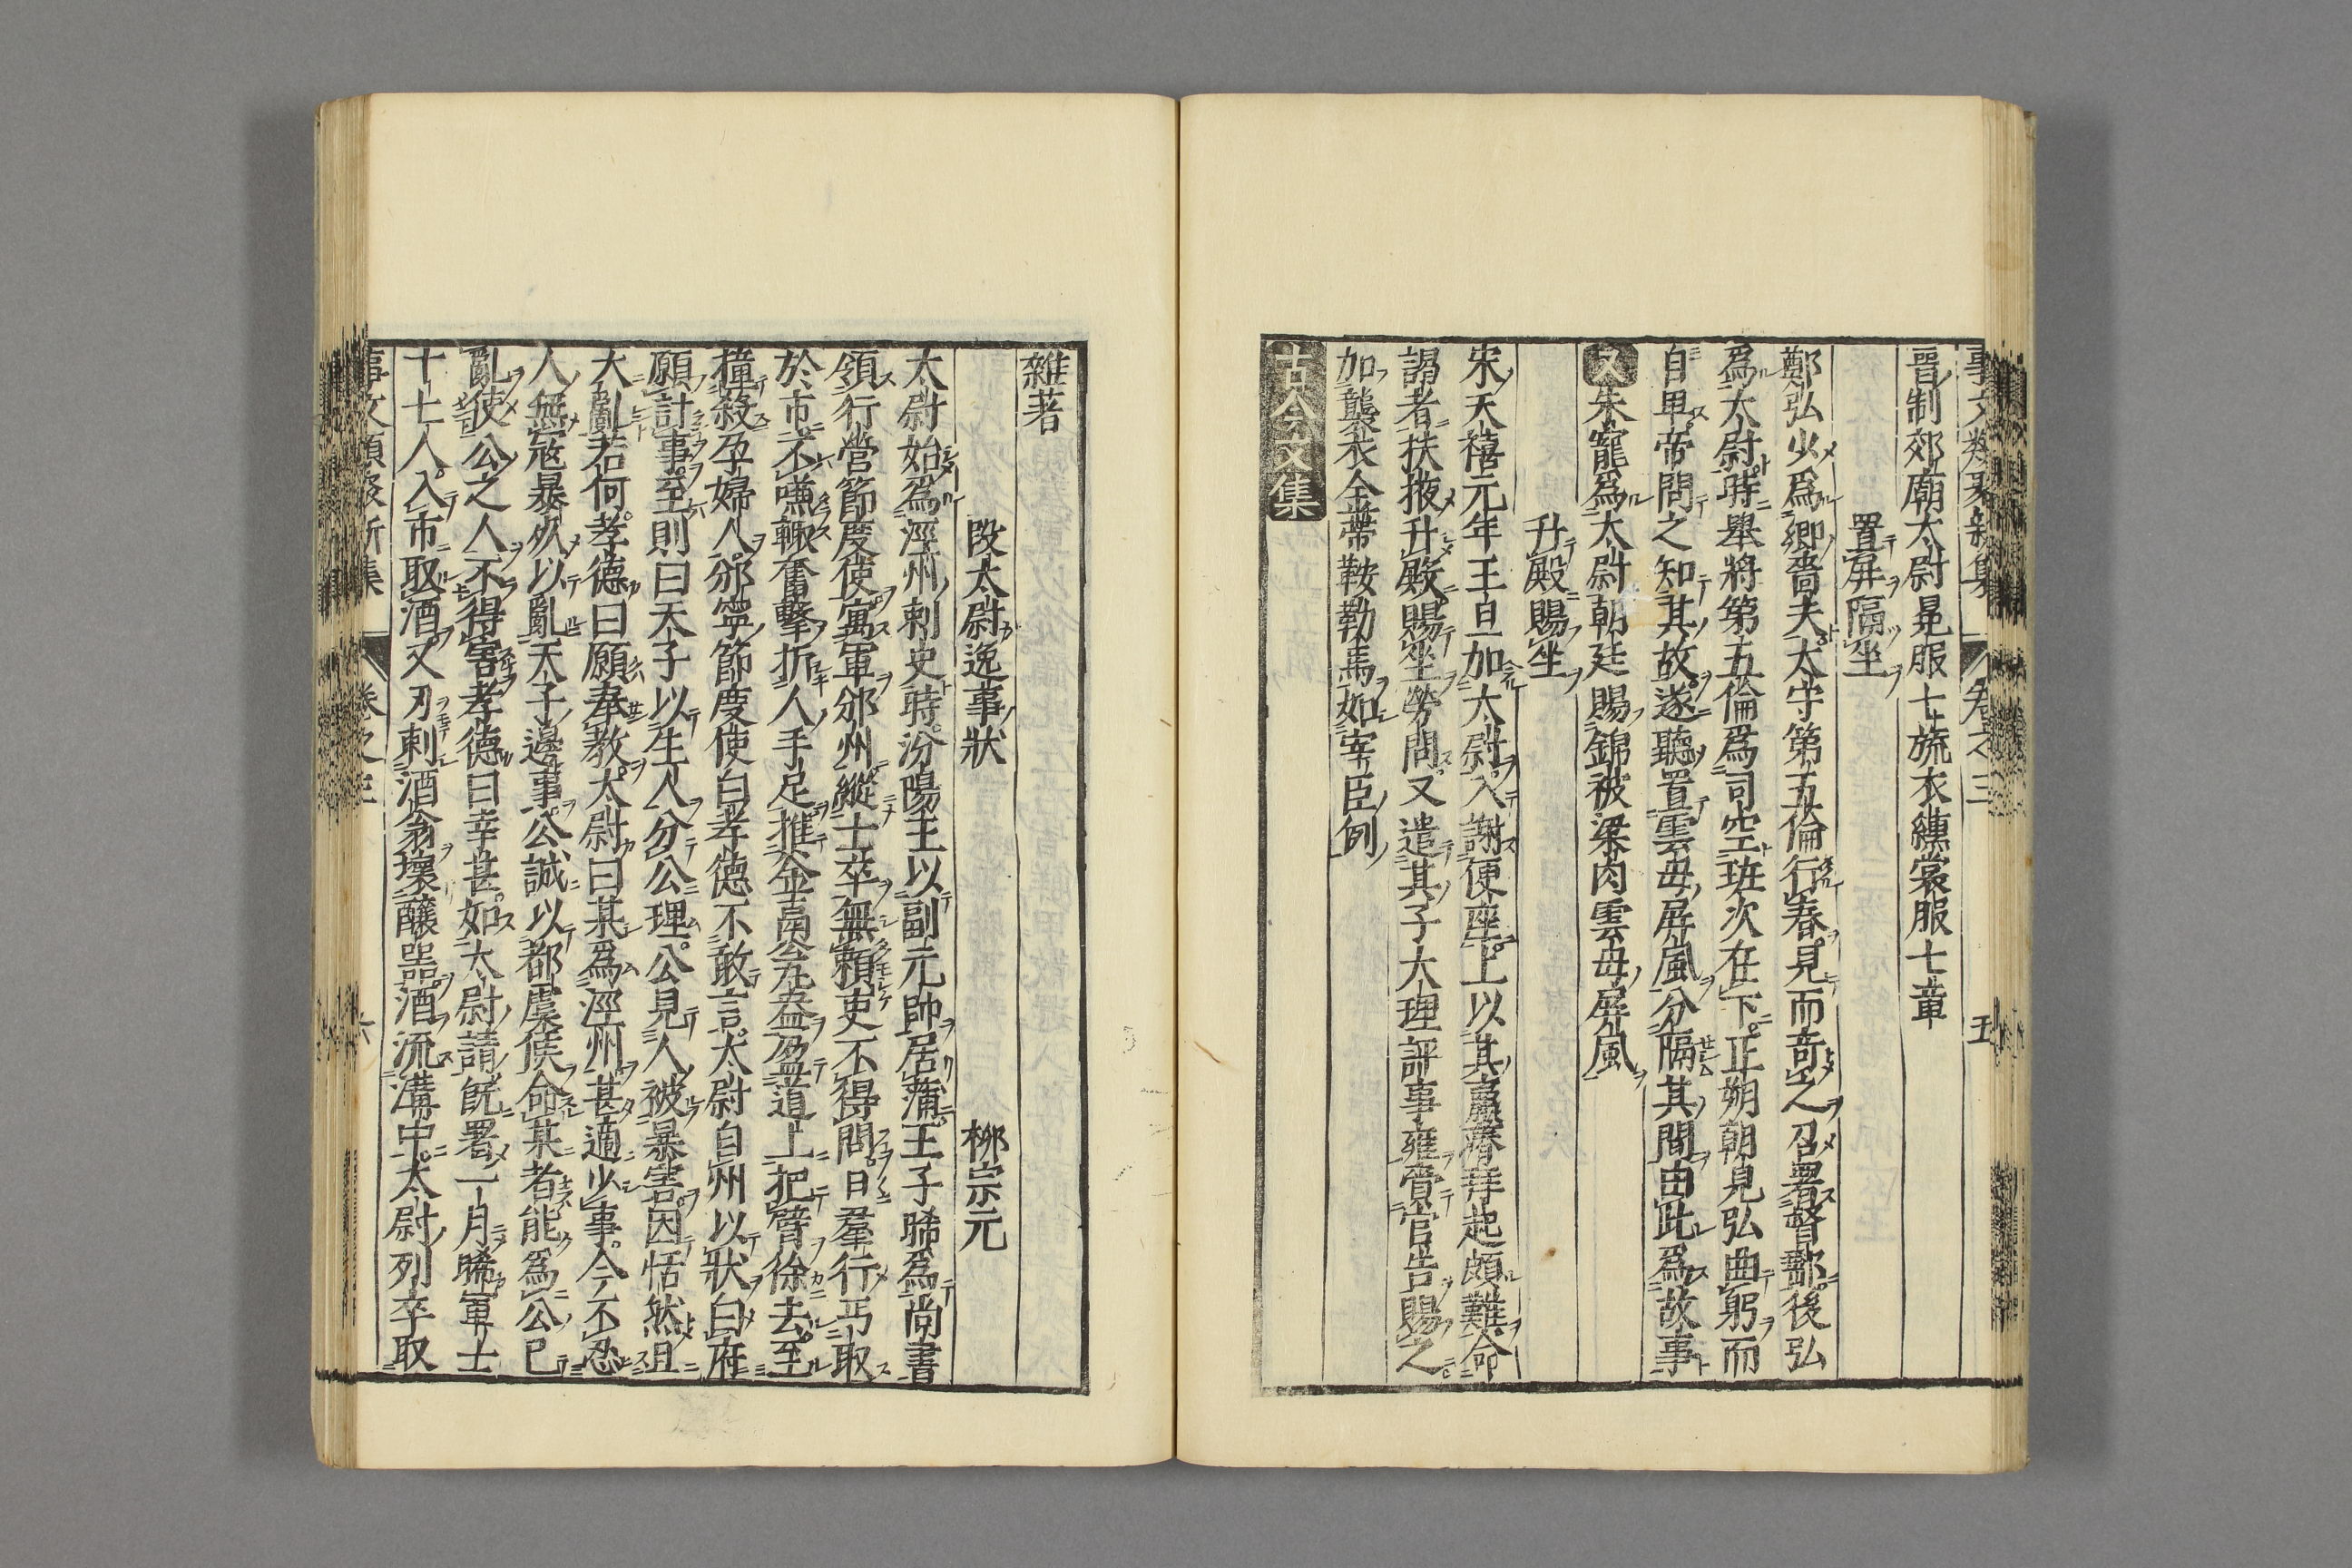 事文類聚新集 卷之三 五
晋制郊廟太尉冕服七旒衣纁裳服七章
置屏隔坐
鄭弘少爲鄉嗇夫太守第五倫行春見而奇之召署督郵後弘
爲太尉時舉將第五倫爲司空班次在下正朔朝見弘曲躬而
自卑帝問之知其故遂聽置雲母屏風分隔其間由此爲故事
又朱寵爲太尉朝廷賜錦被梁肉雲母屏風
升殿賜坐
宋天禧元年王旦加大尉入謝便座上以其羸瘠拜起頗難命
謁者扶掖升殿賜坐勞問又遣其子大理評事雍賷官告賜之
加襲衣金帶鞍勒馬如宰臣例
古今文集
雜著
段太尉逸事狀 柳宗元
太尉始爲涇州刺史時汾陽王以副元帥居蒲王子晞爲尚書
領行營節度使寓軍邠州縱士卒無賴吏不得問日羣行丐取
於市不嗛輙奮擊折人手足推釜鬲瓮盎盈道上把臂徐去至
撞殺孕婦人邠寧節度使白孝德不敢言太尉自州以狀白府
願計事至則曰天子以生人分公理公見人被暴害因恬然且
大亂若何孝德曰願奉教太尉曰某爲涇州甚適少事今不忍
人無寇暴死以亂天子邊事公誠以都虞候命某者能爲公已
亂使公之人不得害孝德曰幸甚如太尉請旣署一月晞軍士
十七人入市取酒又刃刺酒翁壞釀噐酒流溝中太尉列卒取
事文類聚新集 卷之三 六